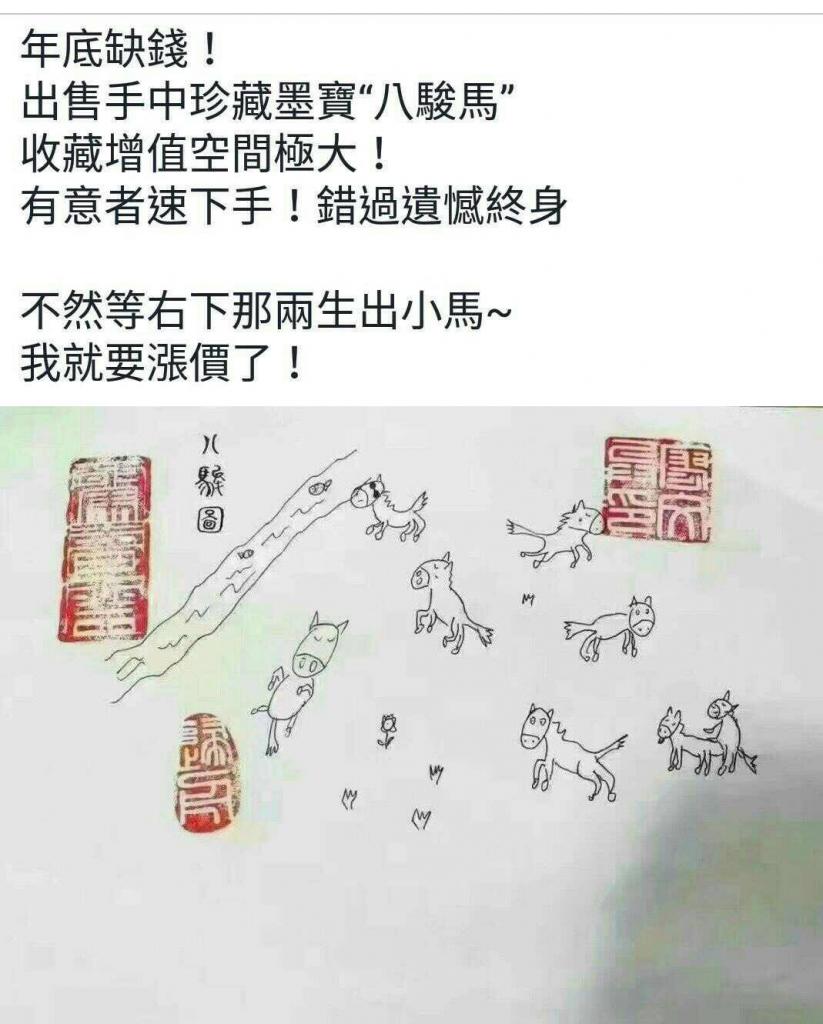 年底缺錢！
出售手中珍藏墨寶“八駿馬”
收藏增值空間極大！
有意者速下手！錯過遺憾終身
不然等右下那兩生出小馬~
我就要漲價了！
八駿圖